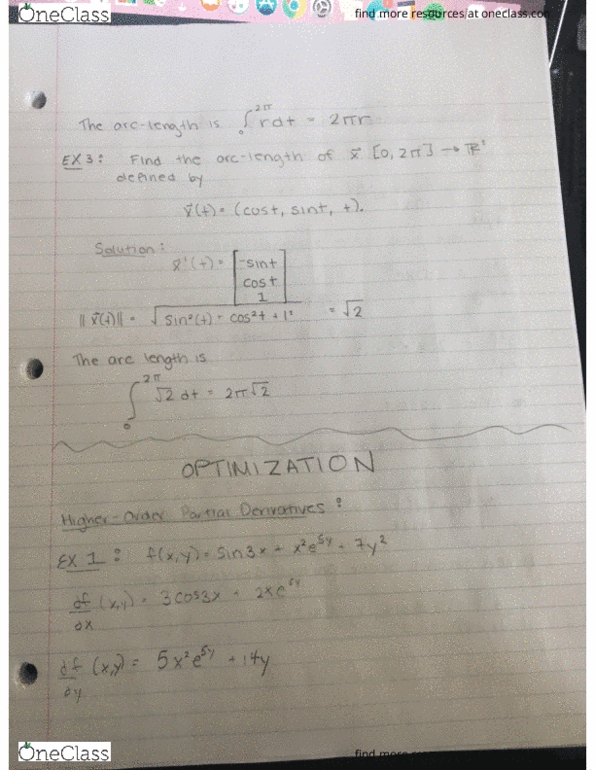 OneClass
find more resources at oneclass.com
The arc-length is ∫₀^2π r dt = 2πr
EX 3: Find the arc-length of x⃗ [0, 2π] → ℝ³
defined by
x⃗(t) = (cost, sint, t).
Solution:
x⃗'(t) = [-sint
cost
1]
||x⃗(t)|| = √sin²(t) - cos²t + 1² = √2
The arc length is
∫₀^2π √2 dt = 2π√2
OPTIMIZATION
Higher-Order Partial Derivatives:
EX 1: f(x,y) = sin3x + x²e^5y + 7y²
df/dx (x,y) = 3cos3x + 2xe^5y
df/dy (x,y) = 5x²e^5y + 14y
OneClass
find more